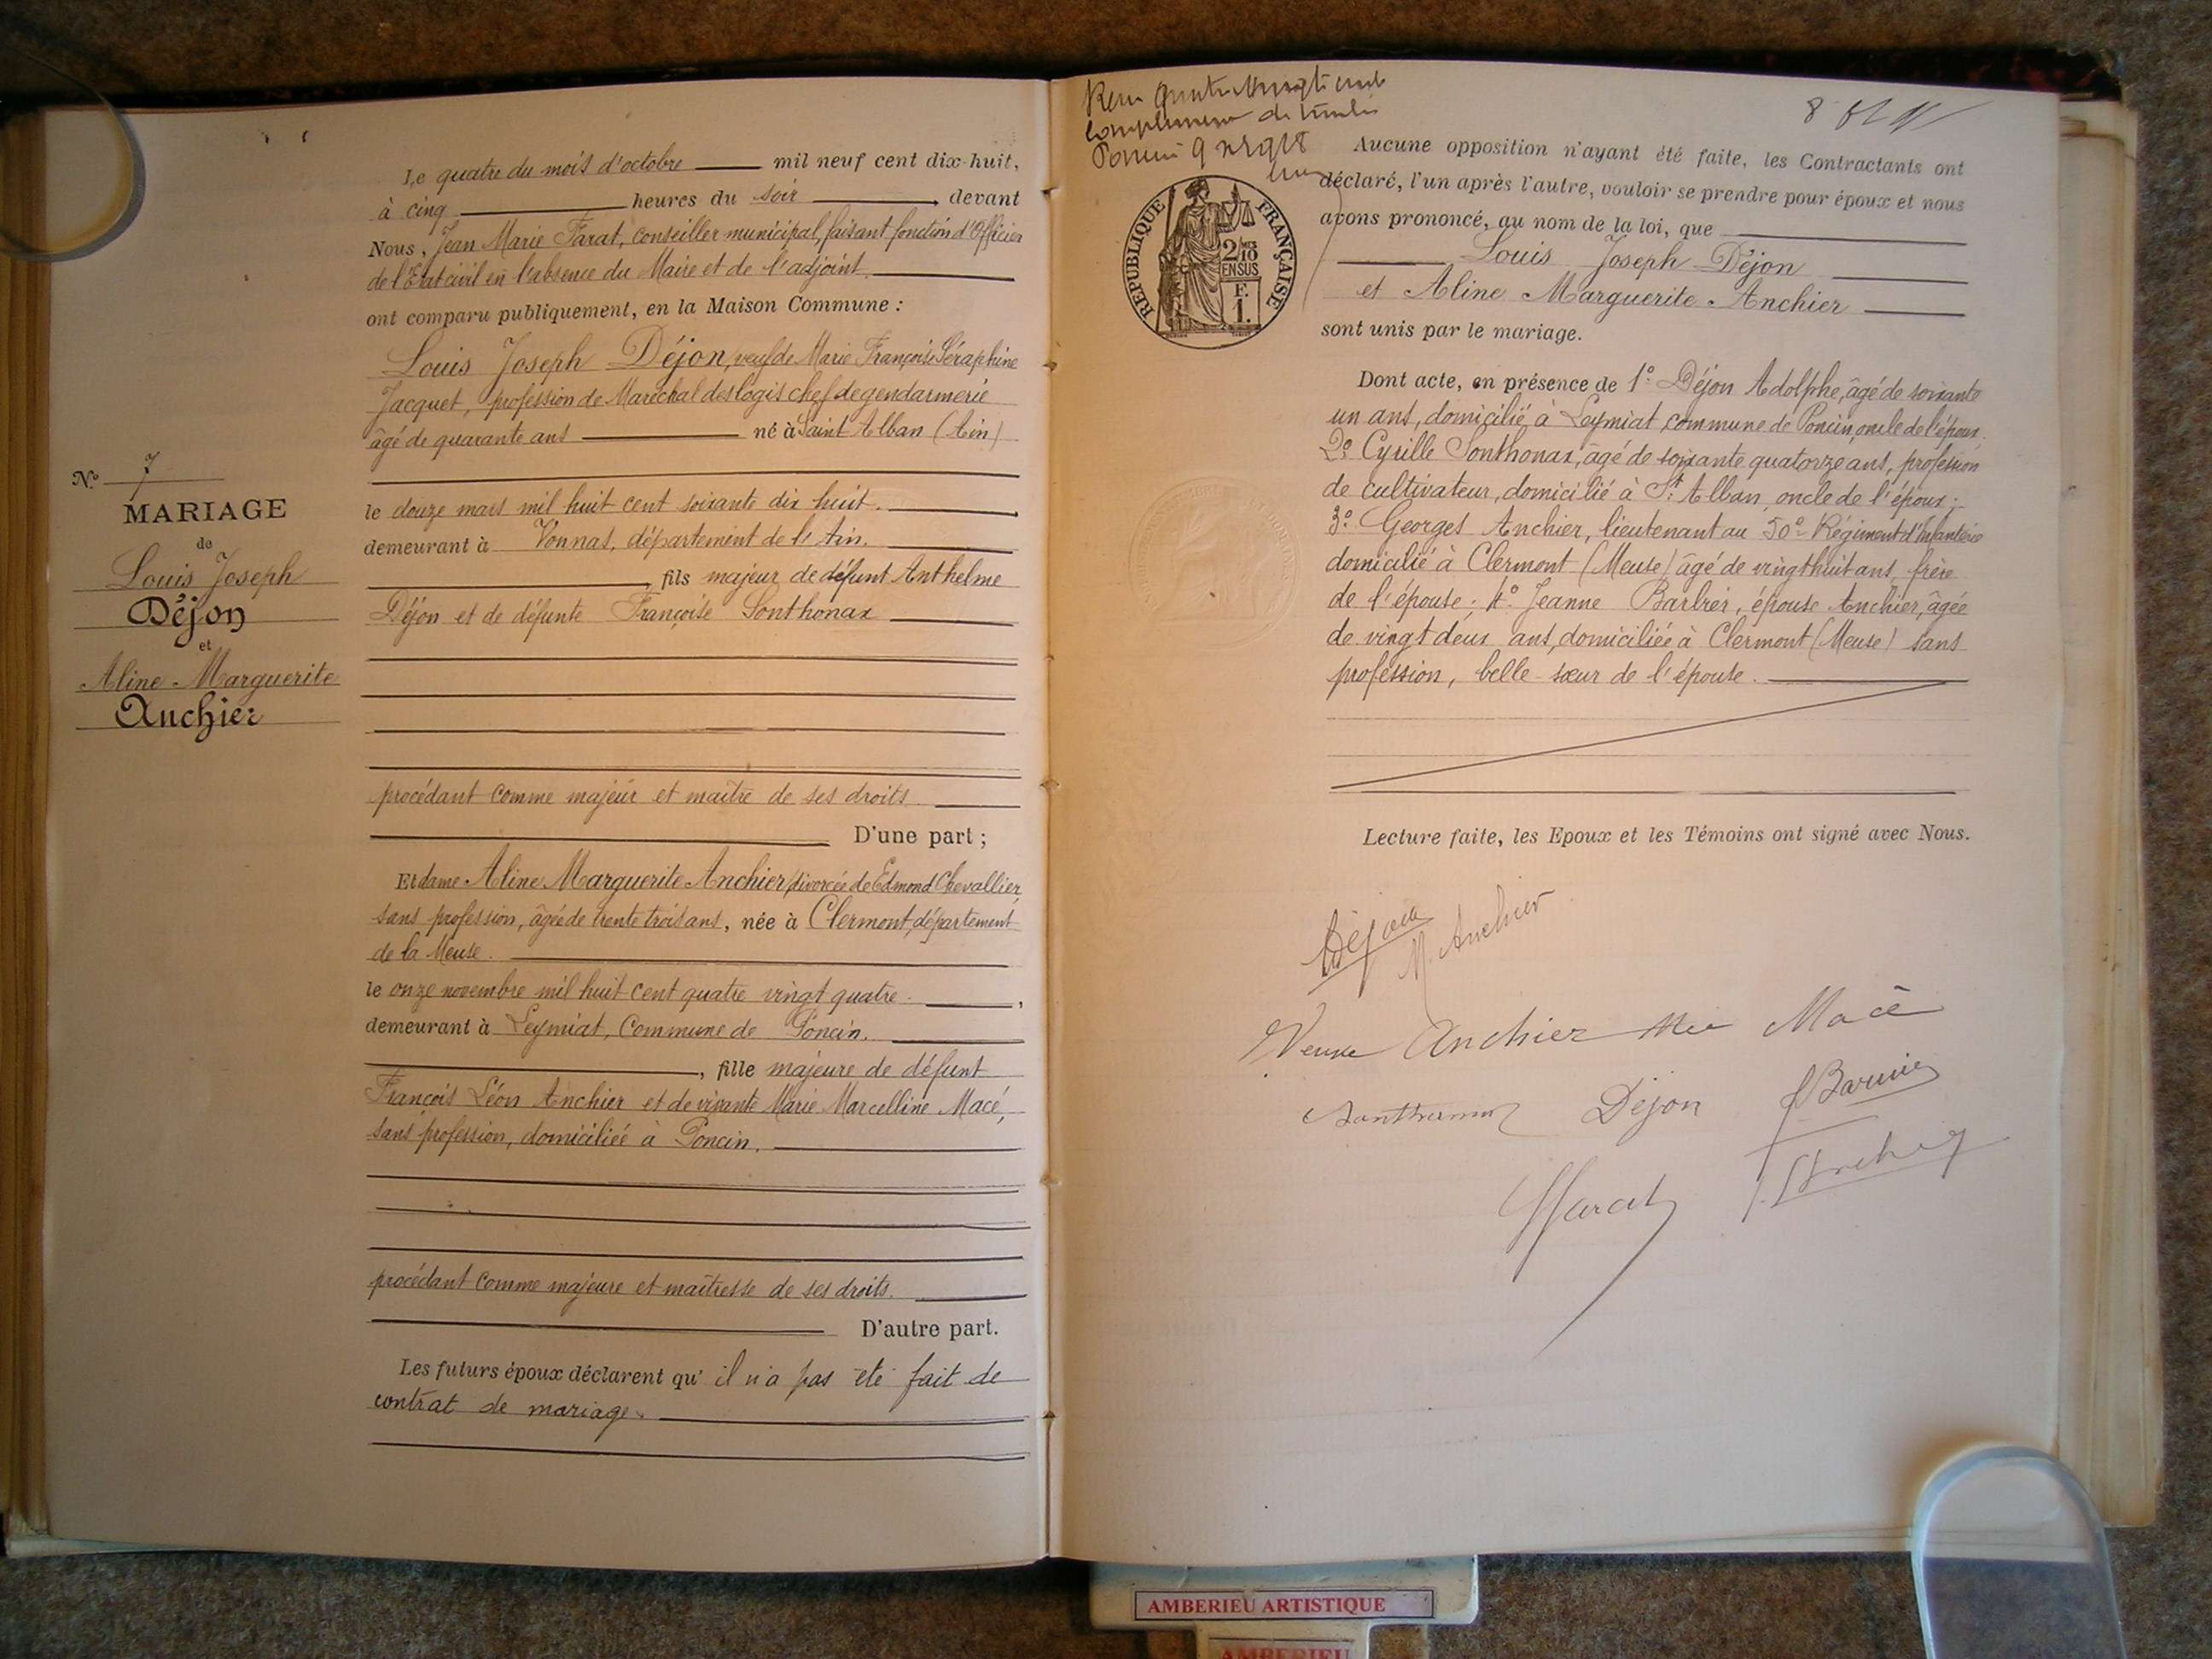 Le quatre du mois d'octobre mil neuf cent dix-huit,
à cinq heures du soir, devant
Nous, Jean Marie Farat, conseiller municipal, faisant fonction d'Officier
de l'Etat civil en l'absence du Maire et de l'adjoint.
ont comparu publiquement, en la Maison Commune :
Louis Joseph Déjon, veuf de Marie Françoise Séraphine
Jacquet, profession de Maréchal des logis chef de gendarmerie
âgé de quarante ans né à Saint Alban (Ain)
le douze mars mil huit cent soixante dix huit.
demeurant à Vonnas, département de l'Ain.
, fils majeur de défunt Anthelme
Déjon et de défunte Françoise Sonthonax
procédant comme majeur et maître de ses droits.
D'une part ;
Et dame Aline Marguerite Anchier, divorcée de Edmond Chevallier,
sans profession, âgée de trente trois ans, née à Clermont, département
de la Meuse.
le onze novembre mil huit cent quatre vingt quatre.,
demeurant à Leymiat, Commune de Poncin.
, fille majeure de défunt
François Léon Anchier et de vivante Marie Marcelline Macé,
sans profession, domiciliée à Poncin.
procédant comme majeure et maîtresse de ses droits.
D'autre part.
Les futurs époux déclarent qu'il n'a pas été fait de
contrat de mariage.
N.° 7
MARIAGE
de
Louis Joseph
Déjon
et
Aline Marguerite
Anchier
Poncin 9
8
RÉPUBLIQUE FRANÇAISE
2/10
EN SUS
F.
1.
Aucune opposition n'ayant été faite, les Contractants ont
déclaré, l'un après l'autre, vouloir se prendre pour époux et nous
avons prononcé, au nom de la loi, que
Louis Joseph Déjon
et Aline Marguerite Anchier
sont unis par le mariage.
Dont acte, en présence de 1° Déjon Adolphe, âgé de soixante
un ans, domicilié à Leymiat, commune de Poncin, oncle de l'époux.
2° Cyrille Sonthonax, âgé de soixante quatorze ans, profession
de cultivateur, domicilié à St Alban, oncle de l'époux;
3° Georges Anchier, lieutenant au 50e Régiment d'Infanterie
domicilié à Clermont (Meuse) âgé de vingt huit ans, frère
de l'épouse; 4° Jeanne Barbier, épouse Anchier, âgée
de vingt deux ans, domiciliée à Clermont (Meuse) sans
profession, belle-sœur de l'épouse.
Lecture faite, les Epoux et les Témoins ont signé avec Nous.
Déjon
M. Anchier
Veuve Anchier née Macé
Déjon
Farat
AMBERIEU ARTISTIQUE
AMBERIEU